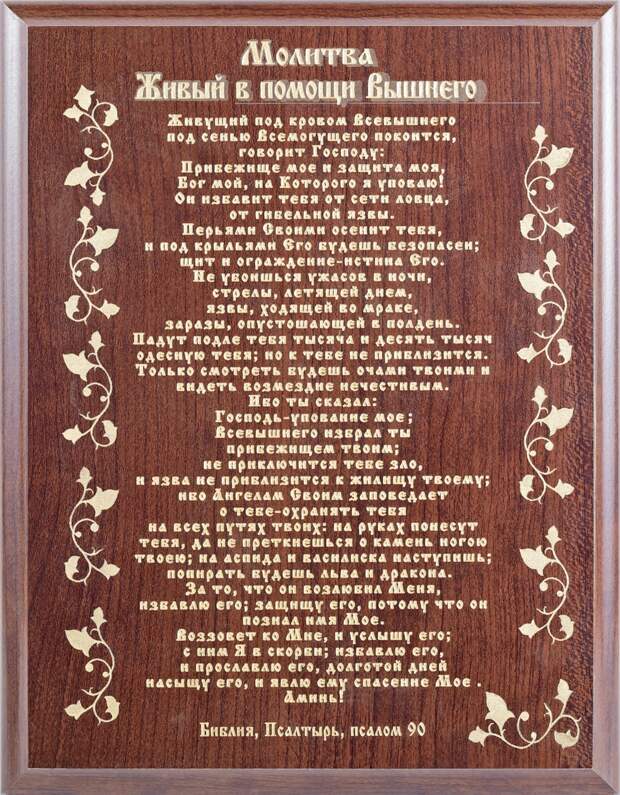 Молитва
Живый в помощи Вышнего
Живущий под кровом Всевышнего
под сенью Всемогущего покоится,
говорит Господу:
Прибежище мое и защита моя,
Бог мой, на Которого я уповаю!
Он избавит тебя от сети ловца,
от гибельной язвы.
Перьями Своими осенит тебя,
и под крыльями Его будешь безопасен;
щит и ограждение-истина Его.
Не убоишься ужасов в ночи,
стрелы, летящей днем,
язвы, ходящей во мраке,
заразы, опустошающей в полдень.
Падут подле тебя тысяча и десять тысяч
одесную тебя; но к тебе не приблизится.
Только смотреть будешь очами твоими и
видеть возмездие нечестивым.
Ибо ты сказал:
Господь-упование мое;
Всевышнего избрал ты
прибежищем твоим;
не приключится тебе зло,
и язва не приблизится к жилищу твоему;
ибо Ангелам Своим заповедает
о тебе-охранять тебя
на всех путях твоих: на руках понесут
тебя, да не преткнешься о камень ногою
твоею; на аспида и василиска наступишь;
попирать будешь льва и дракона.
За то, что он возлюбил Меня,
избавлю его; защищу его, потому что он
познал имя Мое.
Воззовет ко Мне, и услышу его;
с ним Я в скорби; избавлю его,
и прославлю его, долготой дней
насыщу его, и явлю ему спасение Мое .
Аминь!
Библия, Псалтырь, псалом 90